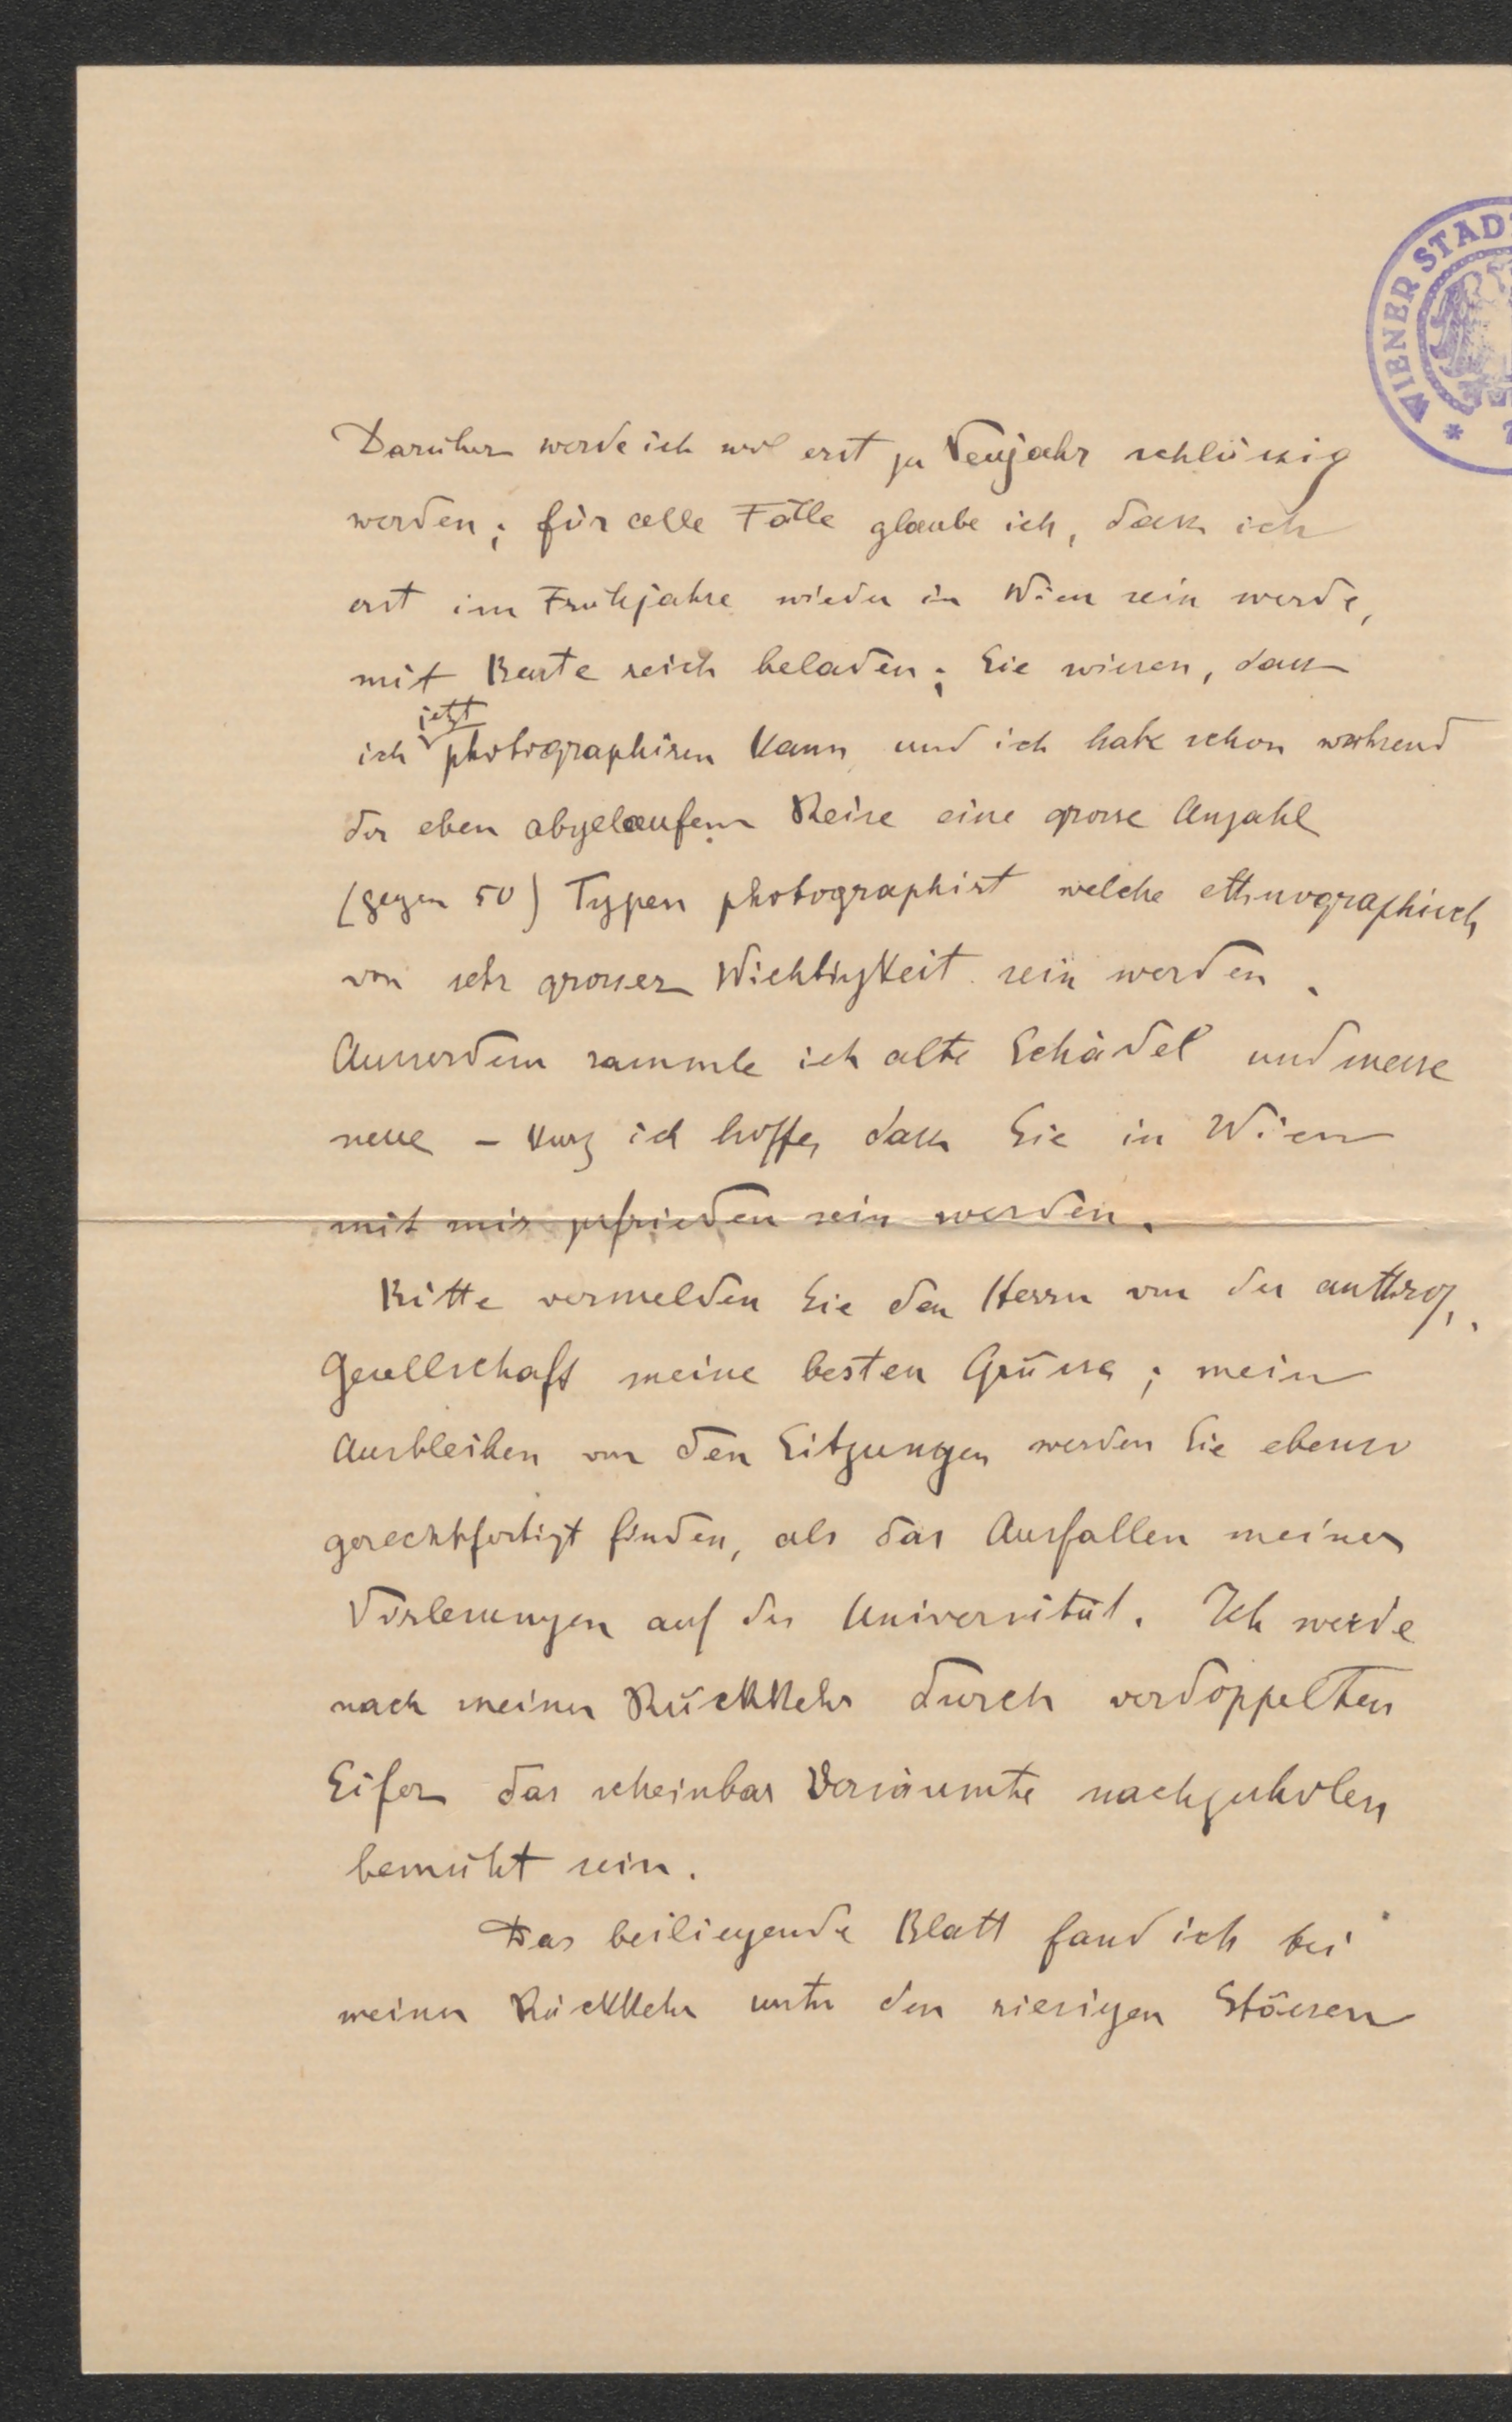 WIENER STAD
*
Darüber werde ich wol erst zu Neujahr schlüssig
werden; für alle Fälle glaube ich, dass ich
erst im Frühjahre wieder in Wien sein werde,
mit Beute reich beladen; Sie wissen, dass
jetzt
ich photographiren kann und ich habe schon während
der eben abgelaufenen Reise eine grosse Anzahl
(gegen 50) Typen photographirt welche ethnographisch
von sehr grosser Wichtigkeit sein werden.
Ausserdem sammle ich alte Schädel und messe
neue – kurz ich hoffe, dass Sie in Wien
mit mir zufrieden sein werden.
Bitte vermelden Sie den Herrn von der anthrop.
Gesellschaft meine besten Grüsse; mein
Ausbleiben von den Sitzungen werden Sie ebenso
gerechtfertigt finden, als das Ausfallen meiner
Vorlesungen auf der Universität. Ich werde
nach meiner Rückkehr durch verdoppelten
Eifer das scheinbar Versäumte nachzuholen
bemüht sein.
Das beiliegende Blatt fand ich bei
meiner Rückkehr unter den riesigen Stössen